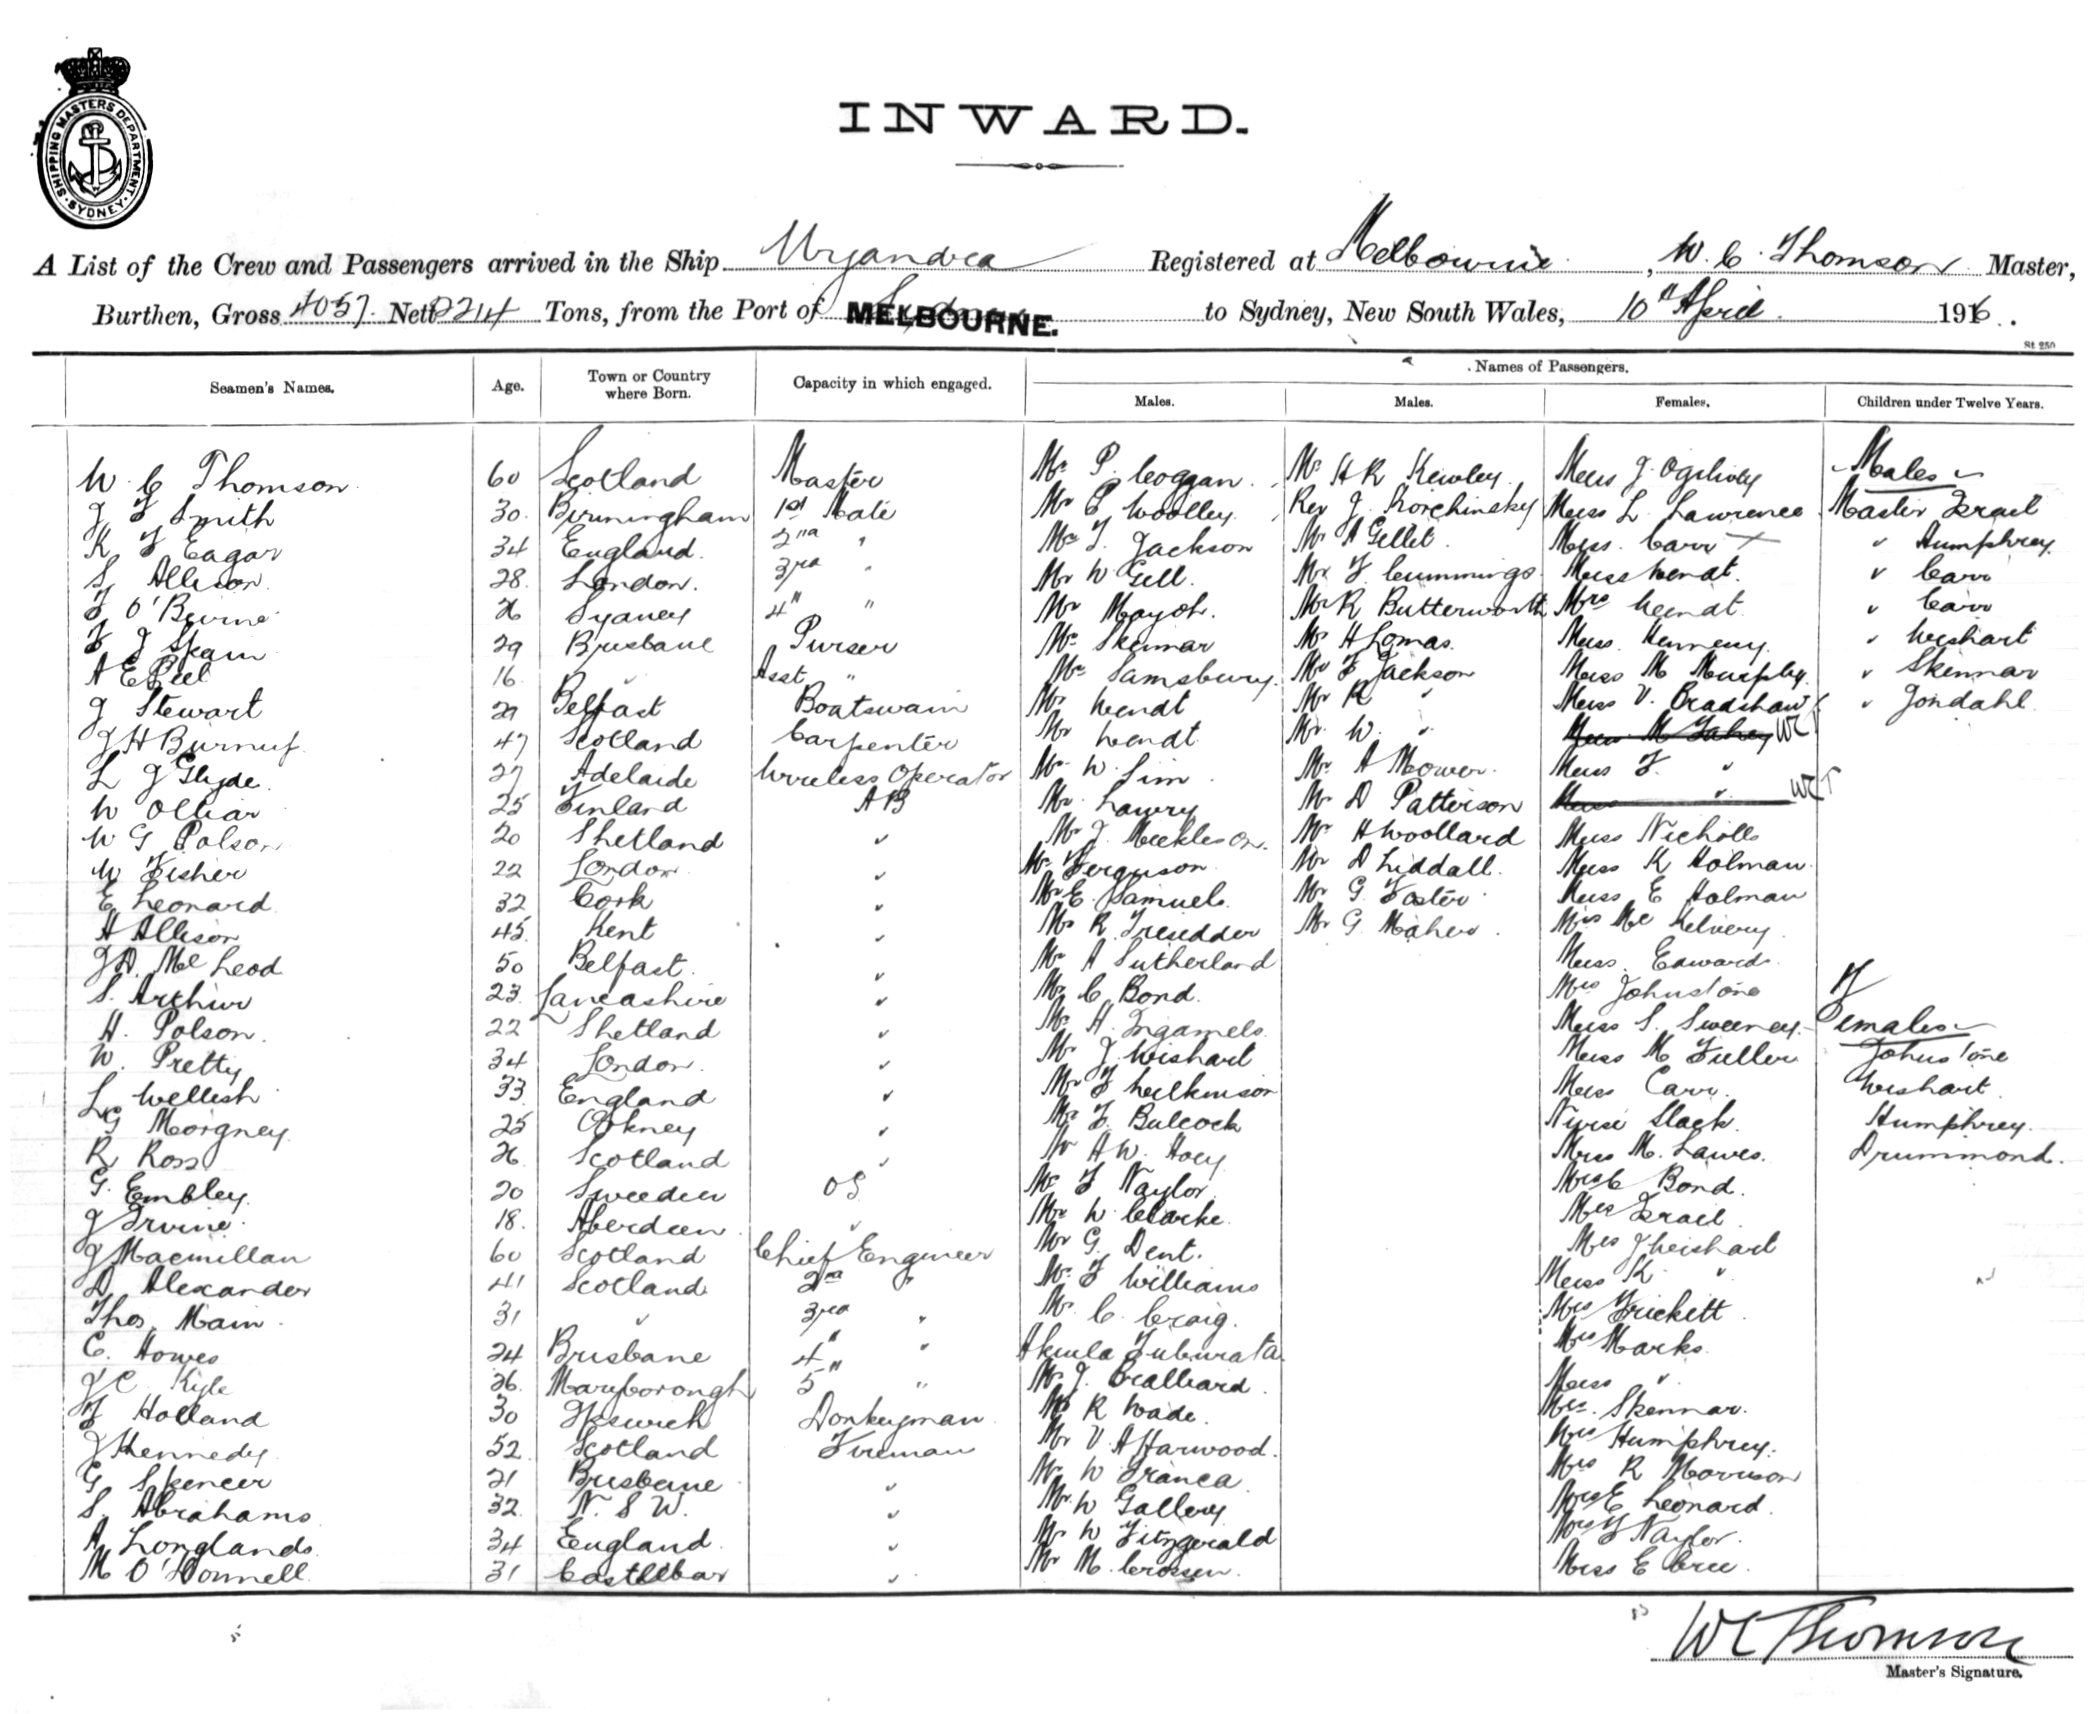 SHIPPING MASTERS DEPARTMENT. SYDNEY.
INWARD.
A List of the Crew and Passengers arrived in the Ship Wyandra Registered at Melbourne, W. C. Thomson Master,
Burthen, Gross 4057. Nett 2214 Tons, from the Port of MELBOURNE. to Sydney, New South Wales, 10th April 1916.
St 250
Seamen's Names. Age. Town or Country where Born. Capacity in which engaged. Names of Passengers.
Males. Males. Females. Children under Twelve Years.
W. C Thomson 60 Scotland Master Mr P. Coggan. Mr H R Kewley Miss J. Ogilivey Males
J F Smith 30. Birmingham 1st Mate Mr E Woolley Rev J. Korchinsky Miss L. Lawrence Master Israel
K F Eagar 34 England. 2nd " Mr T. Jackson Mr A Gellet. Miss. Carr " Humphrey
S Allison 28. London. 3rd " Mr W Gill. Mr F Cummings Miss Wendt. " Carr
F O'Beirne 26 Sydney 4th " Mr Mayoh. Mr R Butterworth Mrs Wendt. " Carr
F J Spain 29 Brisbane Purser Mr Skennar Mr H Lomas. Miss. Hennessy. " Wishart
A E Peel 16 " Asst " Mr Samsbury. Mr F Jackson Miss M Murphy. " Skennar
J Stewart 29 Belfast Boatswain Mr Wendt Mr R " Miss V. Bradshaw " Jondahl.
J H Burnuf. 47 Scotland Carpenter Mr Wendt Mr. W. " Miss M Fahey WCT
L J Clyde. 27 Adelaide Wireless Operator Mr. W. Sim Mr A Mower. Miss F. "
W Olliar 25 Finland AB Mr. Lawry Mr. D Patterson Miss " WCT
W G Polson 20 Shetland " Mr J. Meekleson. Mr H Woollard Miss Nicholls
W Fisher 22 London " Mr Ferguson Mr D Liddall. Miss K Holman.
E Leonard 32 Cork " Mr E. Samuels. Mr G. Foster Miss E Holman
H Allison 45 Kent " Mr R Tresedder Mr G. Maher. Mrs Mc Kelvery
J D. Mc Leod 50 Belfast. " Mr A Sutherland Miss. Edwards.
S. Arthur 23. Lancashire " Mr C Bond. Mrs Johnstone
H. Polson. 22 Shetland " Mr H. Ingamels. Miss S. Sweeney. Females
W. Pretty 34 London. " Mr J. Wishart Miss M Fuller Johnstone
L Wellish 33 England " Mr F Wilkinson Miss Carr. Wishart.
G Morgney. 25 Orkney " Mr F. Bulcock Nurse Slack. Humphrey.
R Ross 26 Scotland " Mr A W. Hoey Mrs M. Lawes. Drummond.
G. Embley. 20 Sweeden OS Mr F Naylor. Mrs C Bond.
J Irvine. 18. Aberdeen " Mr W Clarke. Mrs Israel.
J Macmillan 60 Scotland Chief Engineer Mr G. Dent. Mrs J Wishart
D Alexander 41 Scotland 2nd " Mr F Williams Miss K "
Thos. Main 31 " 3rd " Mr. C. Craig. Mrs Trickett
C. Howes 24 Brisbane 4th " Akula Tuburata. Mrs Marks
J C. Kyle 26. Maryborough 5th " Mr J. Bealliard. Miss "
F Holland 30 Ipswich Donkeyman Mr R Wade. Mrs. Skennar.
J Kennedy 52 Scotland Fireman Mr V A Harwood. Mrs Humphrey.
G Spencer 21 Brisbane " Mr. W Franca Mrs R Morrison
S. Abrahams 32. N. S W. " Mr. W Gallery Mrs E Leonard.
A Longlands. 34 England " Mr W Fitzgerald Mrs F Naylor.
M O'Donnell. 31 Castlebar " Mr M. Crossen. Miss E Cree.
WC Thomson
Master's Signature.